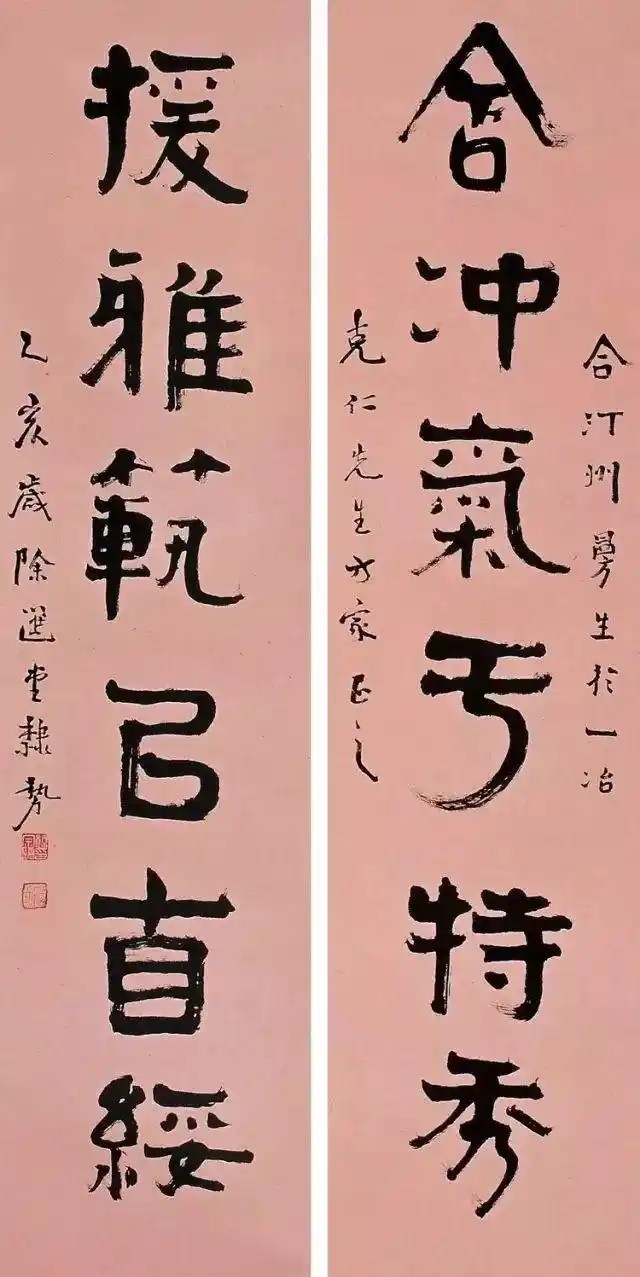 合汀州曼生於一冶
含冲氣于特秀
克仁先生方家正之
援雅範㠯綏
乙亥歲除選堂隸勢